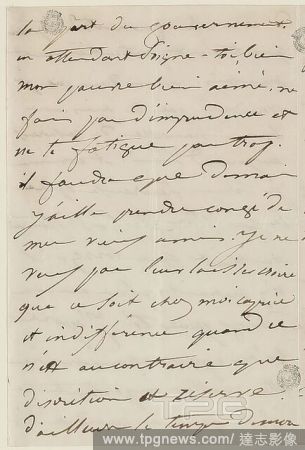 la part du gouvernement.
en attendant soigne-toi bien
mon pauvre bien aimé, ne
fais pas d'imprudence et
ne te fatigue pas trop.
il faudra que demain
j'aille prendre congé de
mes vieux amis. je ne
veux pas leur laisser croire
que ce soit chez moi caprice
et indifférence quand ce
n'est au contraire que
discrétion et réserve.
d'ailleurs le temps
TPG
www.tpgnews.com/達志影像